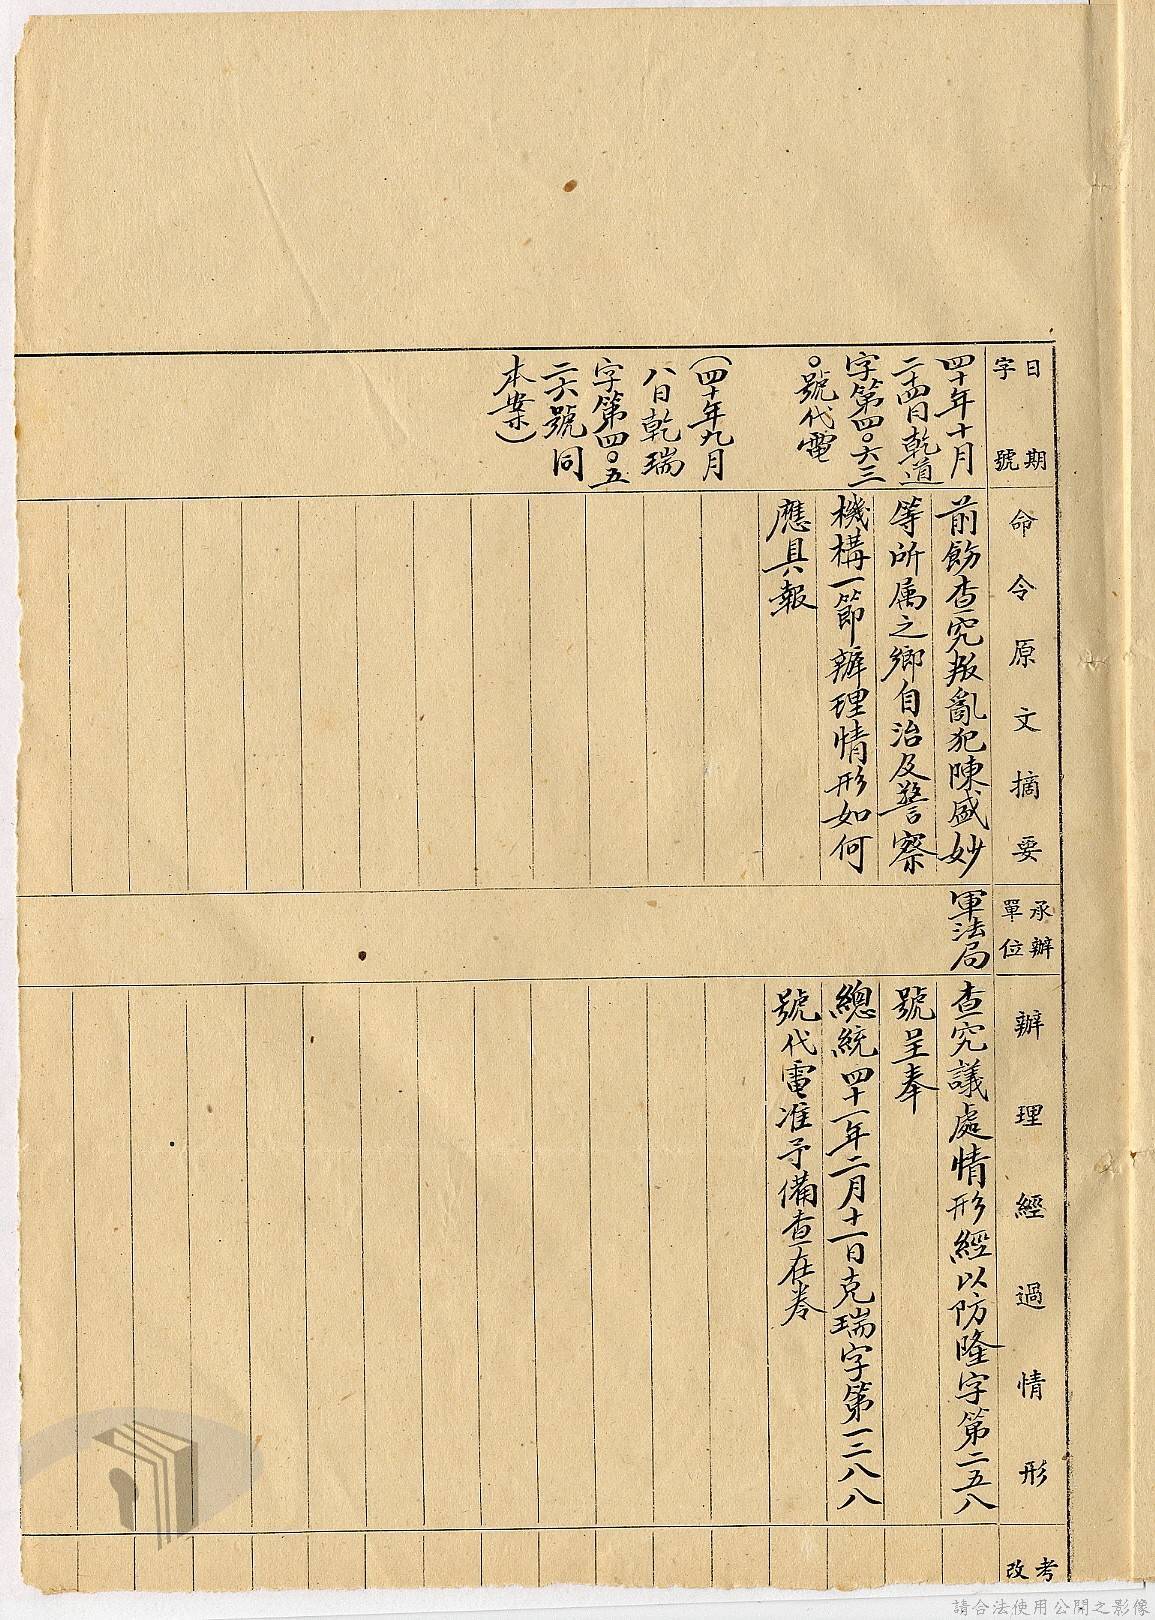 日期
字號
四十年十月
二十四日乾道
字第四〇六三
〇號代電
(四十年九月
八日乾瑞
字第四〇五
二六號同
本案)
命令原文摘要
前飭查究叛亂犯陳盛妙
等所属之鄉自治及警察
機構一節辦理情形如何
應具報
承辦
單位
軍法局
辦理經過情形
查究議處情形經以防隆字第二五八
號呈奉
總統四十一年二月十一日克瑞字第一二八八
號代電准予備查在卷
考
改
請合法使用公開之影像